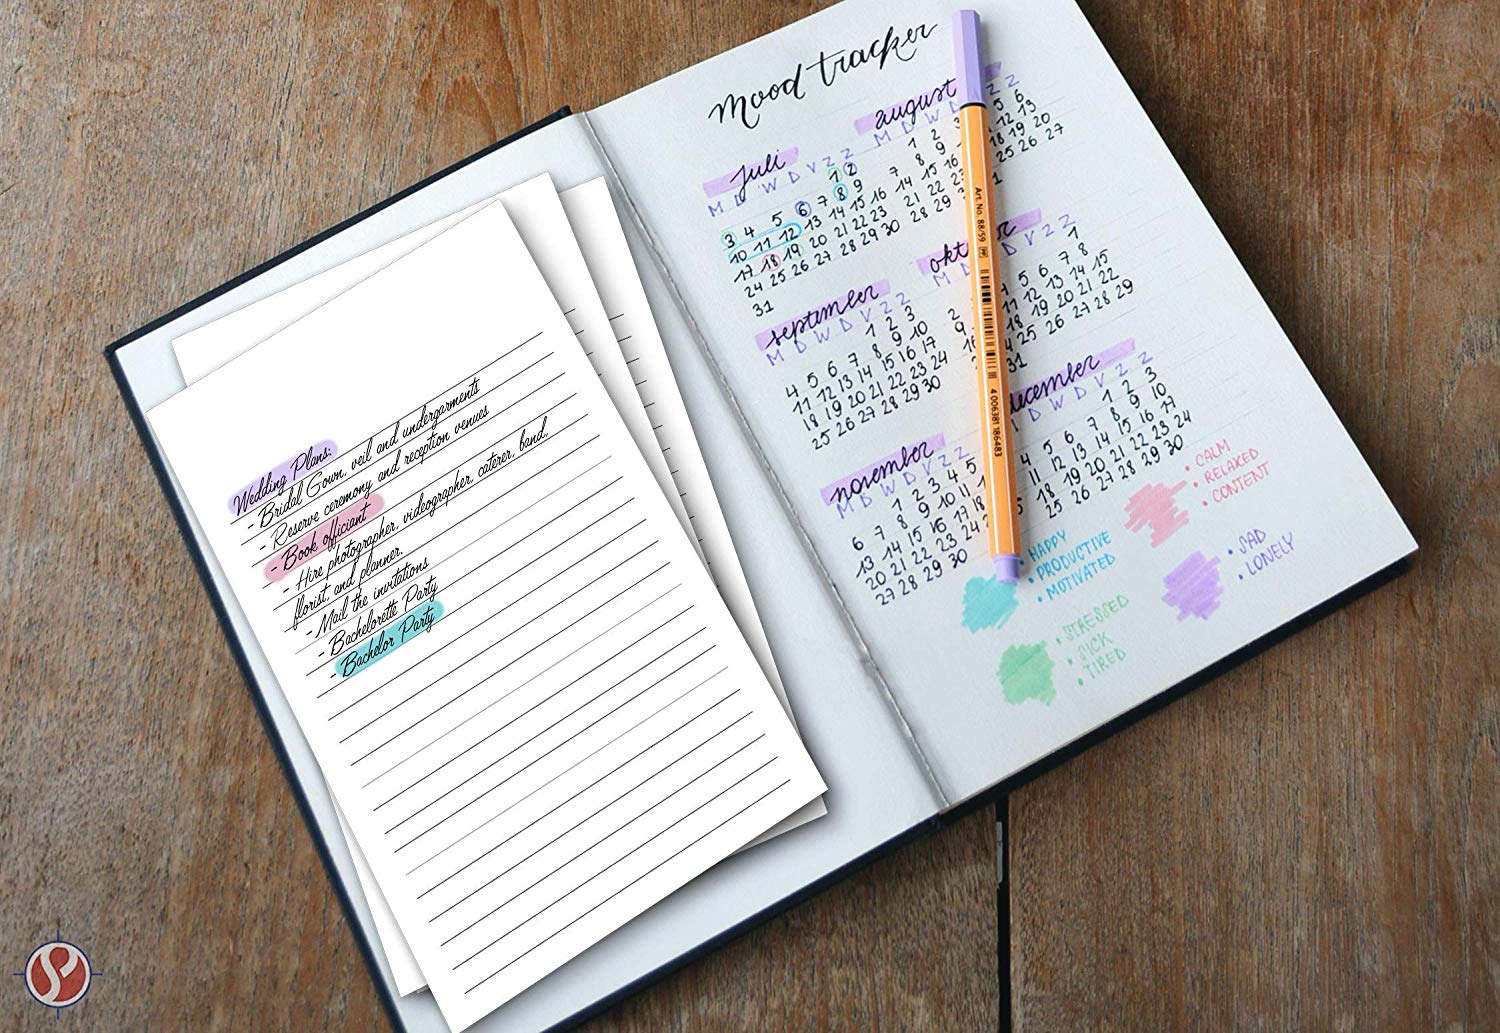 Wedding Plans:
- Bridal Gown, veil and undergarments
- Reserve ceremony and reception venues
- Book officiant
- Hire photographer, videographer, caterer, band,
florist, and planner.
- Mail the invitations
- Bachelorette Party
- Bachelor Party
mood tracker
juli
M D W D V Z Z
1 2
3 4 5 6 7 8 9
10 11 12 13 14 15 16
17 18 19 20 21 22 23
24 25 26 27 28 29 30
31
august
M D W D Z Z
1 2 3 5 6
7 8 9 11 12 13
14 15 16 18 19 20
21 22 23 25 26 27
28 29 30
september
M D W D V Z Z
1 2 3
4 5 6 7 8 9 10
11 12 13 14 15 16 17
18 19 20 21 22 23 24
25 26 27 28 29 30
okt
M D V Z Z
1
2 5 6 7 8
9 11 12 13 14 15
16 18 19 20 21 22
25 26 27 28 29
31
november
M D W D V Z Z
1 2 3 4 5
6 7 8 9 10 11
13 14 15 16 17 18
20 21 22 23 24 25
27 28 29 30
december
D W D V Z Z
1 2 3
5 6 7 8 9 10
11 12 13 14 15 16 17
18 19 20 21 22 23 24
25 26 27 28 29 30
Art. No. 88/59 PP
4 006381 186483
HAPPY
• PRODUCTIVE
• MOTIVATED
• CALM
• RELAXED
• CONTENT
• STRESSED
• SICK
• TIRED
• SAD
• LONELY